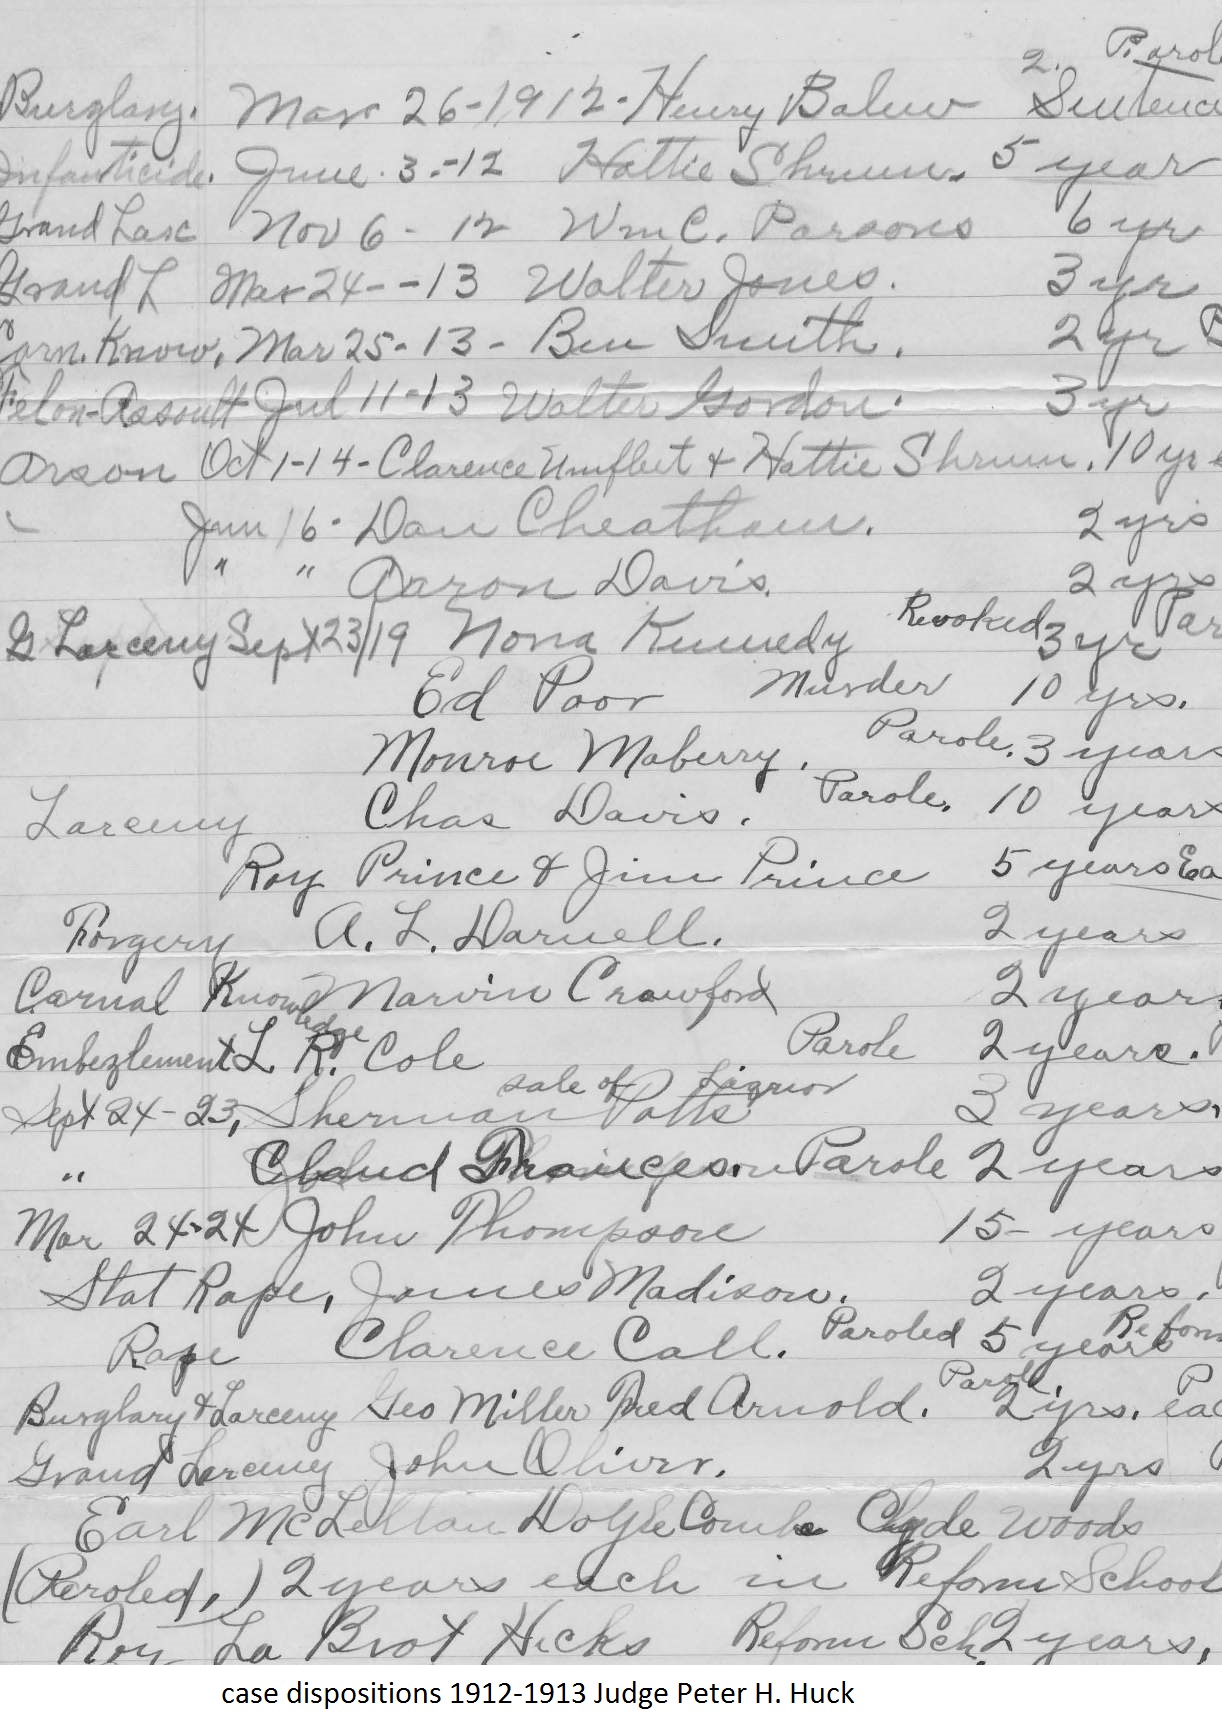 2. Parol
Burglary. Mar 26-1912- Henry Balew Sentence
Infanticide. June. 3.-12 Hattie Shrum. 5 year
Grand Larc Nov 6 - 12 Wm C. Parsons 6 yr
Grand L Mar 24--13 Walter Jones. 3 yr
Carn. Know, Mar 25-13- Ben Smith. 2 yr
Felon-Assault Jul 11-13 Walter Gordon. 3 yr
Arson Oct 1-14- Clarence Umfleet & Hattie Shrum. 10 yr
Jun 16- Dan Cheatham. 2 yrs
" " Aaron Davis. 2 yrs
G Larceny Sept 23/19 Nona Kennedy Revoked 3 yr Par
Ed Poor Murder 10 yrs.
Monroe Maberry. Parole. 3 years
Larceny Chas Davis. Parole. 10 years
Roy Prince & Jim Prince 5 years Ea
Forgery A. L. Darnell. 2 years
Carnal Knowledge Marvin Crawford 2 years
Embezlement L. R. Cole Parole 2 years.
Sept 24-23, Sherman Potts sale of Liquor 3 years,
" Claud Frances. Parole 2 years
Mar 24-24 John Thompson 15- years
Stat Rape, James Madison. 2 years.
Rape Clarence Call. Paroled 5 years Reform
Burglary & Larceny Geo Miller Fred Arnold. Parol. 2 yrs. eac
Grand Larceny John Oliver. 2 yrs
Earl McLellan Doyle Combs Clyde Woods
(Peroled,) 2 years each in Reform School
Roy La Brot Hicks Reform Sch. 2 years,
case dispositions 1912-1913 Judge Peter H. Huck